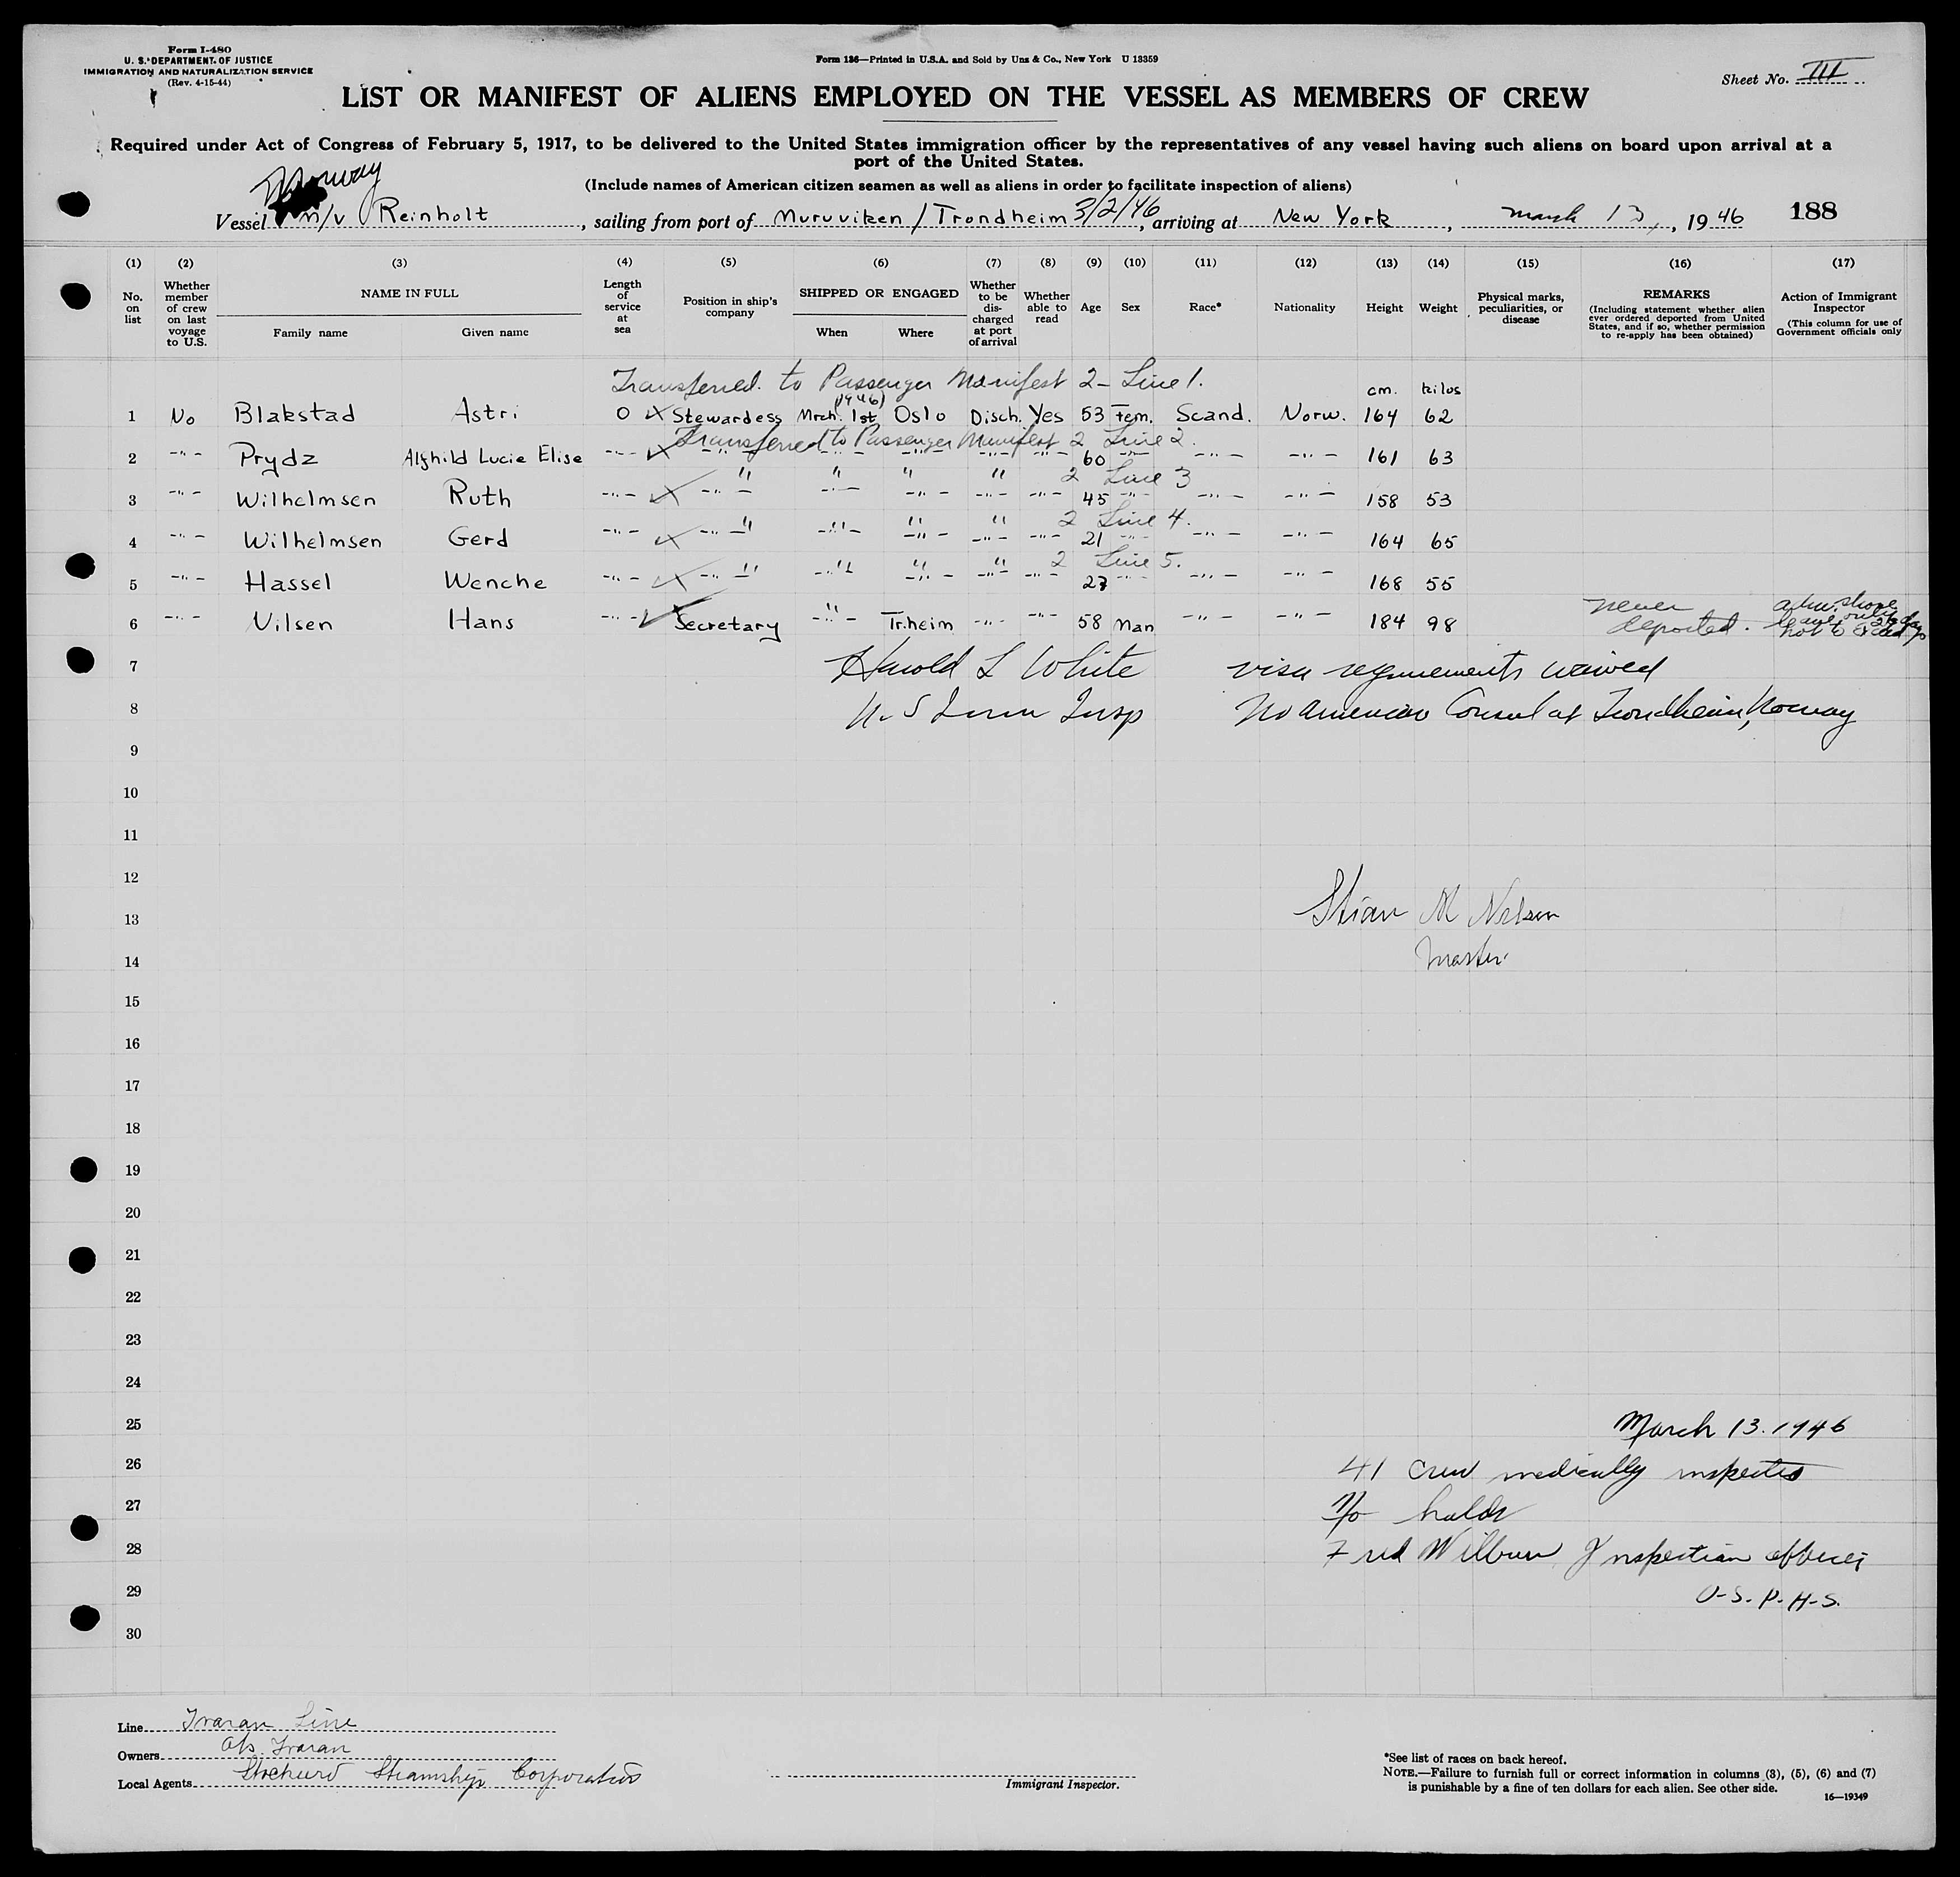 Form I-480
U. S. DEPARTMENT OF JUSTICE
IMMIGRATION AND NATURALIZATION SERVICE
(Rev. 4-15-44)
Form 136—Printed in U.S.A. and Sold by Unz & Co., New York U 13359
Sheet No. III
LIST OR MANIFEST OF ALIENS EMPLOYED ON THE VESSEL AS MEMBERS OF CREW
Required under Act of Congress of February 5, 1917, to be delivered to the United States immigration officer by the representatives of any vessel having such aliens on board upon arrival at a
port of the United States.
(Include names of American citizen seamen as well as aliens in order to facilitate inspection of aliens)
Norway
Vessel m/v Reinholt, sailing from port of Muruviken / Trondheim 3/2/46, arriving at New York, march 13, 1946 188
(1) (2) (3) (4) (5) (6) (7) (8) (9) (10) (11) (12) (13) (14) (15) (16) (17)
No. on list Whether member of crew on last voyage to U.S. NAME IN FULL Family name Given name Length of service at sea Position in ship's company SHIPPED OR ENGAGED When Where Whether to be discharged at port of arrival Whether able to read Age Sex Race* Nationality Height Weight Physical marks, peculiarities, or disease REMARKS (Including statement whether alien ever ordered deported from United States, and if so, whether permission to re-apply has been obtained) Action of Immigrant Inspector (This column for use of Government officials only
Transferred to Passenger Manifest 2- Line 1. cm. kilos
(1946)
1 No Blakstad Astri 0 Stewardess Mrch. 1st Oslo Disch. Yes 53 Fem. Scand. Norw. 164 62
Transferred to Passenger Manifest 2 Line 2.
2 -"- Prydz Alfhild Lucie Elise -"- -"- -"- -"- -"- -"- 60 -"- -"- -"- 161 63
" " " " 2 Line 3
3 -"- Wilhelmsen Ruth -"- -"- -"- -"- -"- -"- 45 -"- -"- -"- 158 53
" " " " 2 Line 4.
4 -"- Wilhelmsen Gerd -"- -"- -"- -"- -"- -"- 21 -"- -"- -"- 164 65
" " " " 2 Line 5.
5 -"- Hassel Wenche -"- -"- -"- -"- -"- -"- 27 -"- -"- -"- 168 55
6 -"- Nilsen Hans -"- Secretary -"- Tr.heim -"- -"- 58 Man -"- -"- 184 98 never deported. shore leave only not to exceed 29 days
7 Harold L White visa requirements waived
8 U.S Imm Insp No American Consul at Trondheim, Norway
9
10
11
12
13 Stian M Nilsen
14 Master
15
16
17
18
19
20
21
22
23
24
25 March 13. 1946
26 41 crew medically inspected
27 No holds
28 Fred Wilbur Inspection officer
29 U-S. P. H-S.
30
Line Ivaran Line
Owners A/s Ivaran
Local Agents Stockard Steamship Corporation
Immigrant Inspector.
*See list of races on back hereof.
NOTE.—Failure to furnish full or correct information in columns (3), (5), (6) and (7)
is punishable by a fine of ten dollars for each alien. See other side.
16—19349